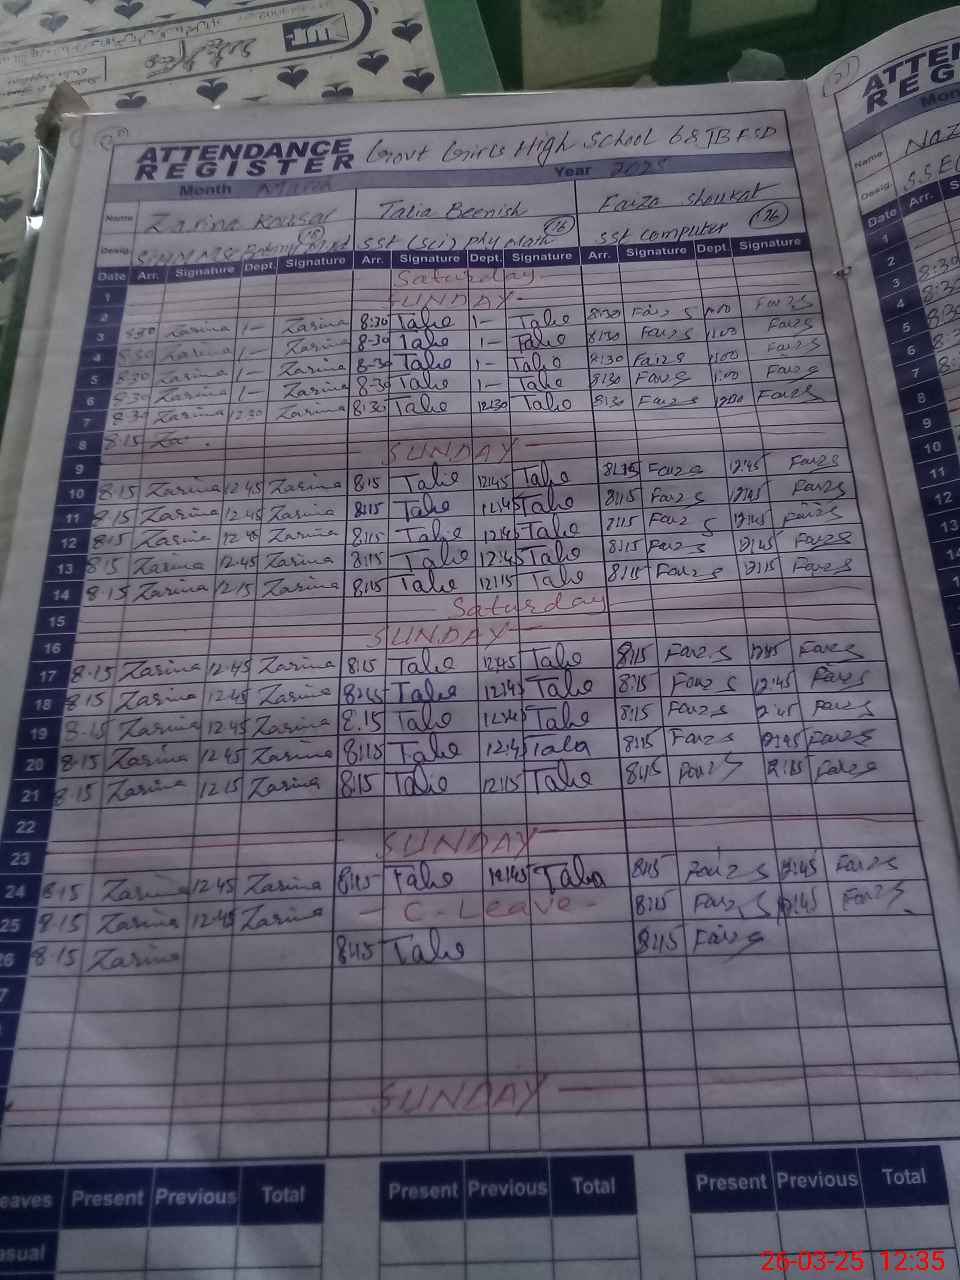 ATTENDANCE REGISTER Govt Girls High School 68 JB FSD
Month March Year 2025
Name Zarina Kousar Talia Beenish Faiza Shoukat
Desig. (16) SST (Sci) Phy Math (16) SST Computer
Date Arr. Signature Dept. Signature Arr. Signature Dept. Signature Arr. Signature Dept. Signature
1 Saturday
2 SUNDAY
3 8:30 Zarina 1- Zarina 8:30 Talie 1- Talie 8:30 Faizs 1:00 Faizs
4 8:30 Zarina 1- Zarina 8-30 Talie 1- Talie 8:30 Faizs 1:00 Faizs
5 8:30 Zarina 1- Zarina 8-30 Talie 1- Talie 8:30 Faizs 1:00 Faizs
6 8:30 Zarina 1- Zarina 8-30 Talie 1- Talie 8:30 Faizs 1:00 Faizs
7 8:30 Zarina 12:30 Zarina 8:30 Talie 12:30 Talie 8:30 Faizs Faizs
8 8:15
9 SUNDAY
10 8:15 Zarina 12:45 Zarina 8:15 Talie 12:45 Talie 8:15 Faizs 12:45 Faizs
11 8:15 Zarina 12:45 Zarina 8:15 Talie 12:45 Talie 8:15 Faizs 12:45 Faizs
12 8:15 Zarina 12:45 Zarina 8:15 Talie 12:45 Talie 8:15 Faizs 12:45 Faizs
13 8:15 Zarina 12:45 Zarina 8:15 Talie 12:45 Talie 8:15 Faizs 12:45 Faizs
14 8:15 Zarina 12:15 Zarina 8:15 Talie 12:15 Talie 8:15 Faizs 12:15 Faizs
15 Saturday
16 SUNDAY
17 8:15 Zarina 12:45 Zarina 8:15 Talie 12:45 Talie 8:15 Faizs 12:45 Faizs
18 8:15 Zarina 12:45 Zarina 8:15 Talie 12:45 Talie 8:15 Faizs 12:45 Faizs
19 8:15 Zarina 12:45 Zarina 8:15 Talie 12:45 Talie 8:15 Faizs 12:45 Faizs
20 8:15 Zarina 12:45 Zarina 8:15 Talie 12:45 Talia 8:15 Faizs 12:45 Faizs
21 8:15 Zarina 12:15 Zarina 8:15 Talie 12:15 Talie 8:15 Faizs 12:15 Faizs
22
23 SUNDAY
24 8:15 Zarina 12:45 Zarina 8:15 Talie 12:45 Talia 8:15 Faizs 12:45 Faizs
25 8:15 Zarina 12:45 Zarina - C-Leave- 8:15 Faizs 12:45 Faizs
26 8:15 Zarina 8:15 Talie 8:15 Faizs
7
SUNDAY
eaves Present Previous Total Present Previous Total Present Previous Total
asual
(21)
ATTEN
REG
Mon
Name NAZ
Desig. SSE
Date Arr. S
1
2
3 8:30
4 8:30
5 8:30
6
7
8
9
10
11
12
13
14
26-03-25 12:35